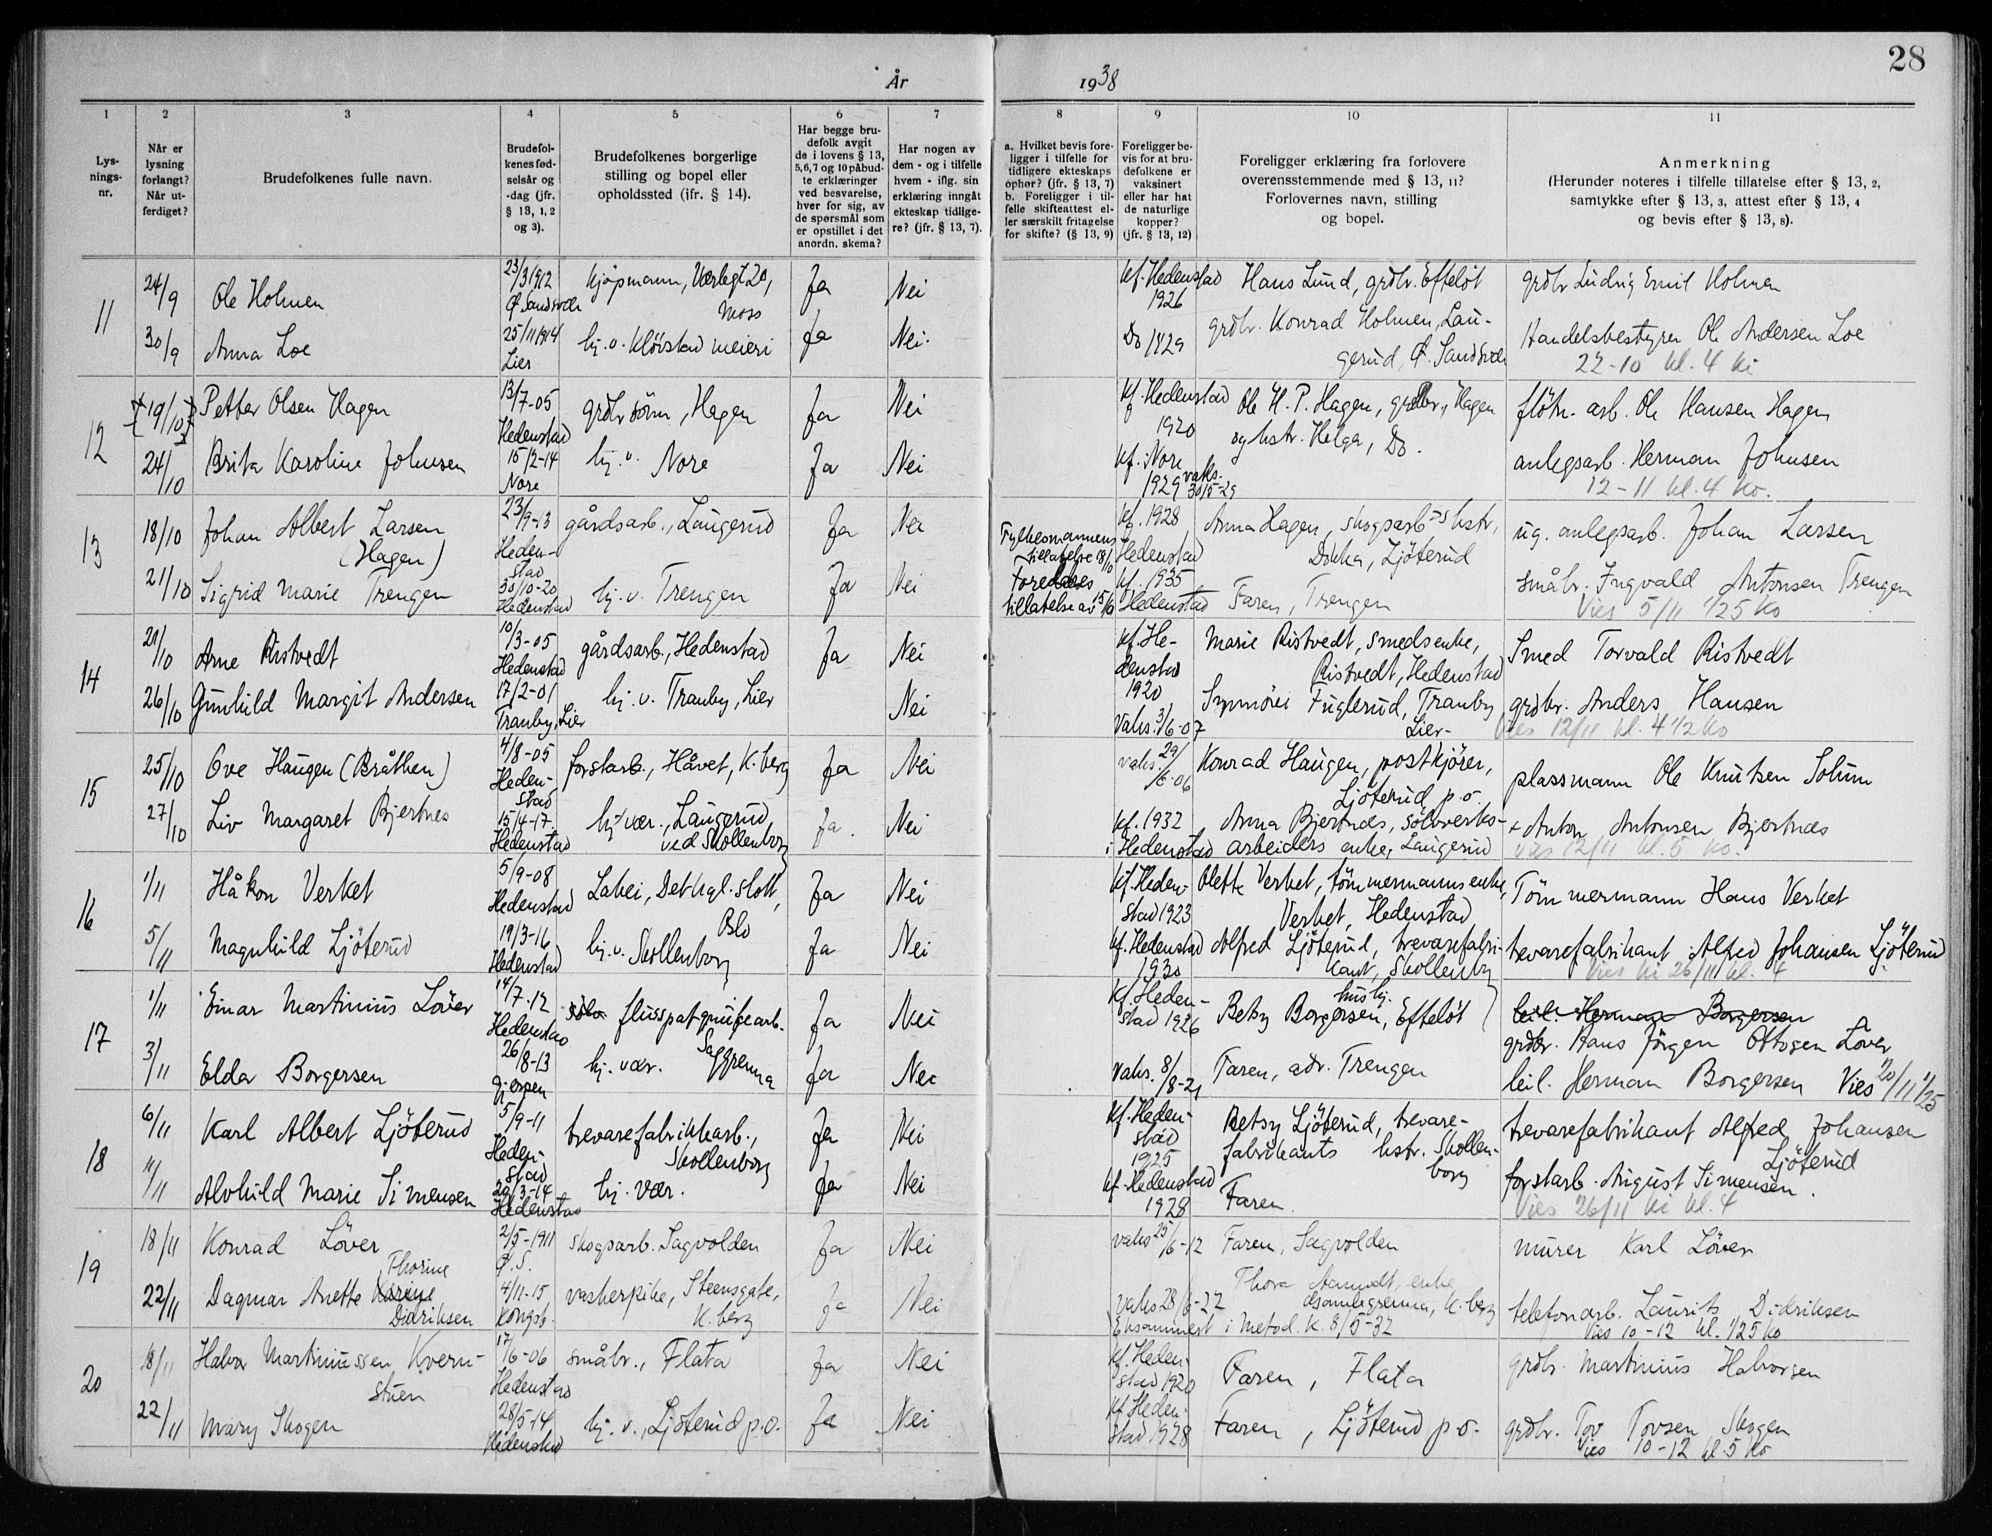 28
År 1938
1 2 3 4 5 6 7 8 9 10 11
Lys-
nings-
nr.
Når er
lysning
forlangt?
Når ut-
ferdiget?
Brudefolkenes fulle navn.
Brudefol-
kenes fød-
selsår og
-dag (jfr.
§ 13, 1, 2
og 3).
Brudefolkenes borgerlige
stilling og bopel eller
opholdssted (jfr. § 14).
Har begge bru-
defolk avgit
de i lovens § 13,
5,6,7 og 10 påbud-
te erklæringer
ved besvarelse,
hver for sig, av
de spørsmål som
er opstillet i det
anordn. skema?
Har nogen av
dem - og i tilfelle
hvem - iflg. sin
erklæring inngåt
ekteskap tidlige-
re? (jfr. § 13, 7).
a. Hvilket bevis fore-
ligger i tilfelle for
tidligere ekteskaps
ophør? (jfr. § 13, 7)
b. Foreligger i til-
felle skifteattest el-
ler særskilt fritagelse
for skifte? (§ 13, 9)
Foreligger be-
vis for at bru-
defolkene er
vaksinert
eller har hat
de naturlige
kopper?
(jfr. § 13, 12)
Foreligger erklæring fra forlovere
overensstemmende med § 13, 11?
Forlovernes navn, stilling
og bopel.
Anmerkning
(Herunder noteres i tilfelle tillatelse efter § 13, 2,
samtykke efter § 13, 3, attest efter § 13, 4
og bevis efter § 13, 8).
11
24/9 Ole Holmen 23/3 1912 Ø. Sandsvær kjøpmann, Værlegt 20, Moss Ja Nei kf. Hedenstad 1926 Hans Lund, grdbr. Efteløt grdbr Ludvig Emil Holmen
30/9 Anna Loe 25/11 1914 Lier hj. v. Kløvstad meieri Ja Nei. Do 1929 grdbr. Konrad Holmen, Lau-gerud, Ø. Sandsvær Handelsbestyrer Ole Andersen Loe
22-10 kl. 4 ki
12
19/10 Petter Olsen Hagen 13/7-05 Hedenstad grdbrsønn, Hagen Ja Nei kf. Hedenstad 1920 Ole H. P. Hagen, grdbr, Hagen og hstr. Helga, Do. fløtn. arb. Ole Hansen Hagen
24/10 Brita Karoline Johnsen 15/2-14 Nore hj. v. Nore Ja Nei kf. i Nore 1929 vaks. 30/5-29 anlegsarb. Herman Johnsen
12-11 kl. 4 ko.
13
18/10 Johan Albert Larsen (Hagen) 23/9-13 Heden-stad gårdsarb., Laugerud Ja Nei Fylkesmannens tillatelse 18/10 kf. 1928 Hedenstad Anna Hagen, skogsarb=s hstr, Dokka, Ljøterud ug. anlegsarb. Johan Larsen
21/10 Sigrid Marie Trengen 30/10-20 Hedenstad hj. v. Trengen Ja Nei Foreldres tillatelse av 15/6 kf. 1935 Hedenstad Faren, Trengen småbr. Ingvald Antonsen Trengen
Vies 5/11 1/2 5 ko
14
21/10 Arne Ristvedt 10/3-05 Hedenstad gårdsarb., Hedenstad Ja Nei kf. He-denstad 1920 Marie Ristvedt, smedsenke, Ristvedt, Hedenstad Smed Torvald Ristvedt
26/10 Gunhild Margit Andersen 17/2-01 Tranby, Lier hj. v. Tranby, Lier Nei Vaks. 3/6-07 Synnöve Fuglerud, Tranby Lier- grdbr. Anders Hansen
Vies 12/11 kl. 4 1/2 ko
15
25/10 Ove Haugen (Bråthen) 4/8-05 Heden-stad forstarb., Håvet, K.berg Ja Nei vaks. 29/6-06 Konrad Haugen, postkjører, Ljøterud p.o. plassmann Ole Knutsen Solum
27/10 Liv Margaret Bjertnes 15/4-17 Hedenstad hj. vær., Laugerud ved Skollenborg Ja. Nei kf. 1932 i Hedenstad Anna Bjertnes, sølvverks-arbeiders enke, Laugerud + Anton Antonsen Bjertnes
Vies 12/11 kl. 5 ko.
16
1/11 Håkon Verket 5/9-08 Hedenstad Lakei, Det kgl. slott, Oslo Ja Nei kf. Heden-stad 1923 Olette Verket, tømmermanns enke, Verket, Hedenstad Tömmermann Hans Verket
5/11 Magnhild Ljöterud 19/3-16 Hedenstad hj. v. Skollenborg Ja Nei kf. Hedenstad 1930 Alfred Ljöterud, trevarefabri-kant, Skollenborg trevarefabrikant Alfred Johansen Ljöterud
Vies ki 26/11 kl. 4
17
1/11 Einar Martinius Löver 14/7-12 Hedenstad flusspatgrubearb. Saggrenna Ja Nei kf. Heden-stad 1926 Betsy Borgersen, hushj. Efteløt leil. Herman Borgersen
grdbr. Hans Jörgen Ottosen Löver
3/11 Elda Borgersen 26/8-13 Gjerpen hj. vær. Ja Nei vaks. 8/8-21 Faren, adr. Trengen leil. Herman Borgersen Vies 20/11 1/2 5
18
6/11 Karl Albert Ljöterud 5/9-11 Heden-stad trevarefabrikkarb., Skollenborg Ja Nei kf. Heden-stad 1925 Betsy Ljöterud, trevare-fabrikants hstr. Skollen-borg trevarefabrikant Alfred Johansen Ljöterud
11/11 Alvhild Marie Simensen 20/3-14 Hedenstad hj. vær. Ja Nei kf. Hedenstad 1928 Faren forstarb. August Simensen.
Vies 26/11 ki kl. 4
19
18/11 Konrad Löver 2/5-1911 Ø. S. skogsarb. Sagvolden Ja Nei vaks 25/6-12 Faren, Sagvolden murer Karl Löver
22/11 Dagmar Anette Thorine Didriksen 4/11-15 Kongsb. vaskerpike, Steensgate, K.berg Ja Nei vaks 28/6-22 Eksaminert i Metod. K. 8/5-32 Thora Aamodt, enke K.berg telefonarb. Laurits Didriksen
Vies 10-12 kl. 1/2 5 ko
20
18/11 Halvor Martiniussen Kvern-stuen 17/6-06 Hedenstad småbr., Flata Ja Nei kf. Heden-stad 1920 Faren, Flata grdbr. Martinius Halvorsen
22/11 Mary Skogen 28/5-14 Hedenstad hj. v., Ljöterud p.o. Ja Nei kf Heden-stad 1928 Faren, Ljöterud p.o. grdbr. Tov Tovsen Skogen
Vies 10-12 kl. 5 ko